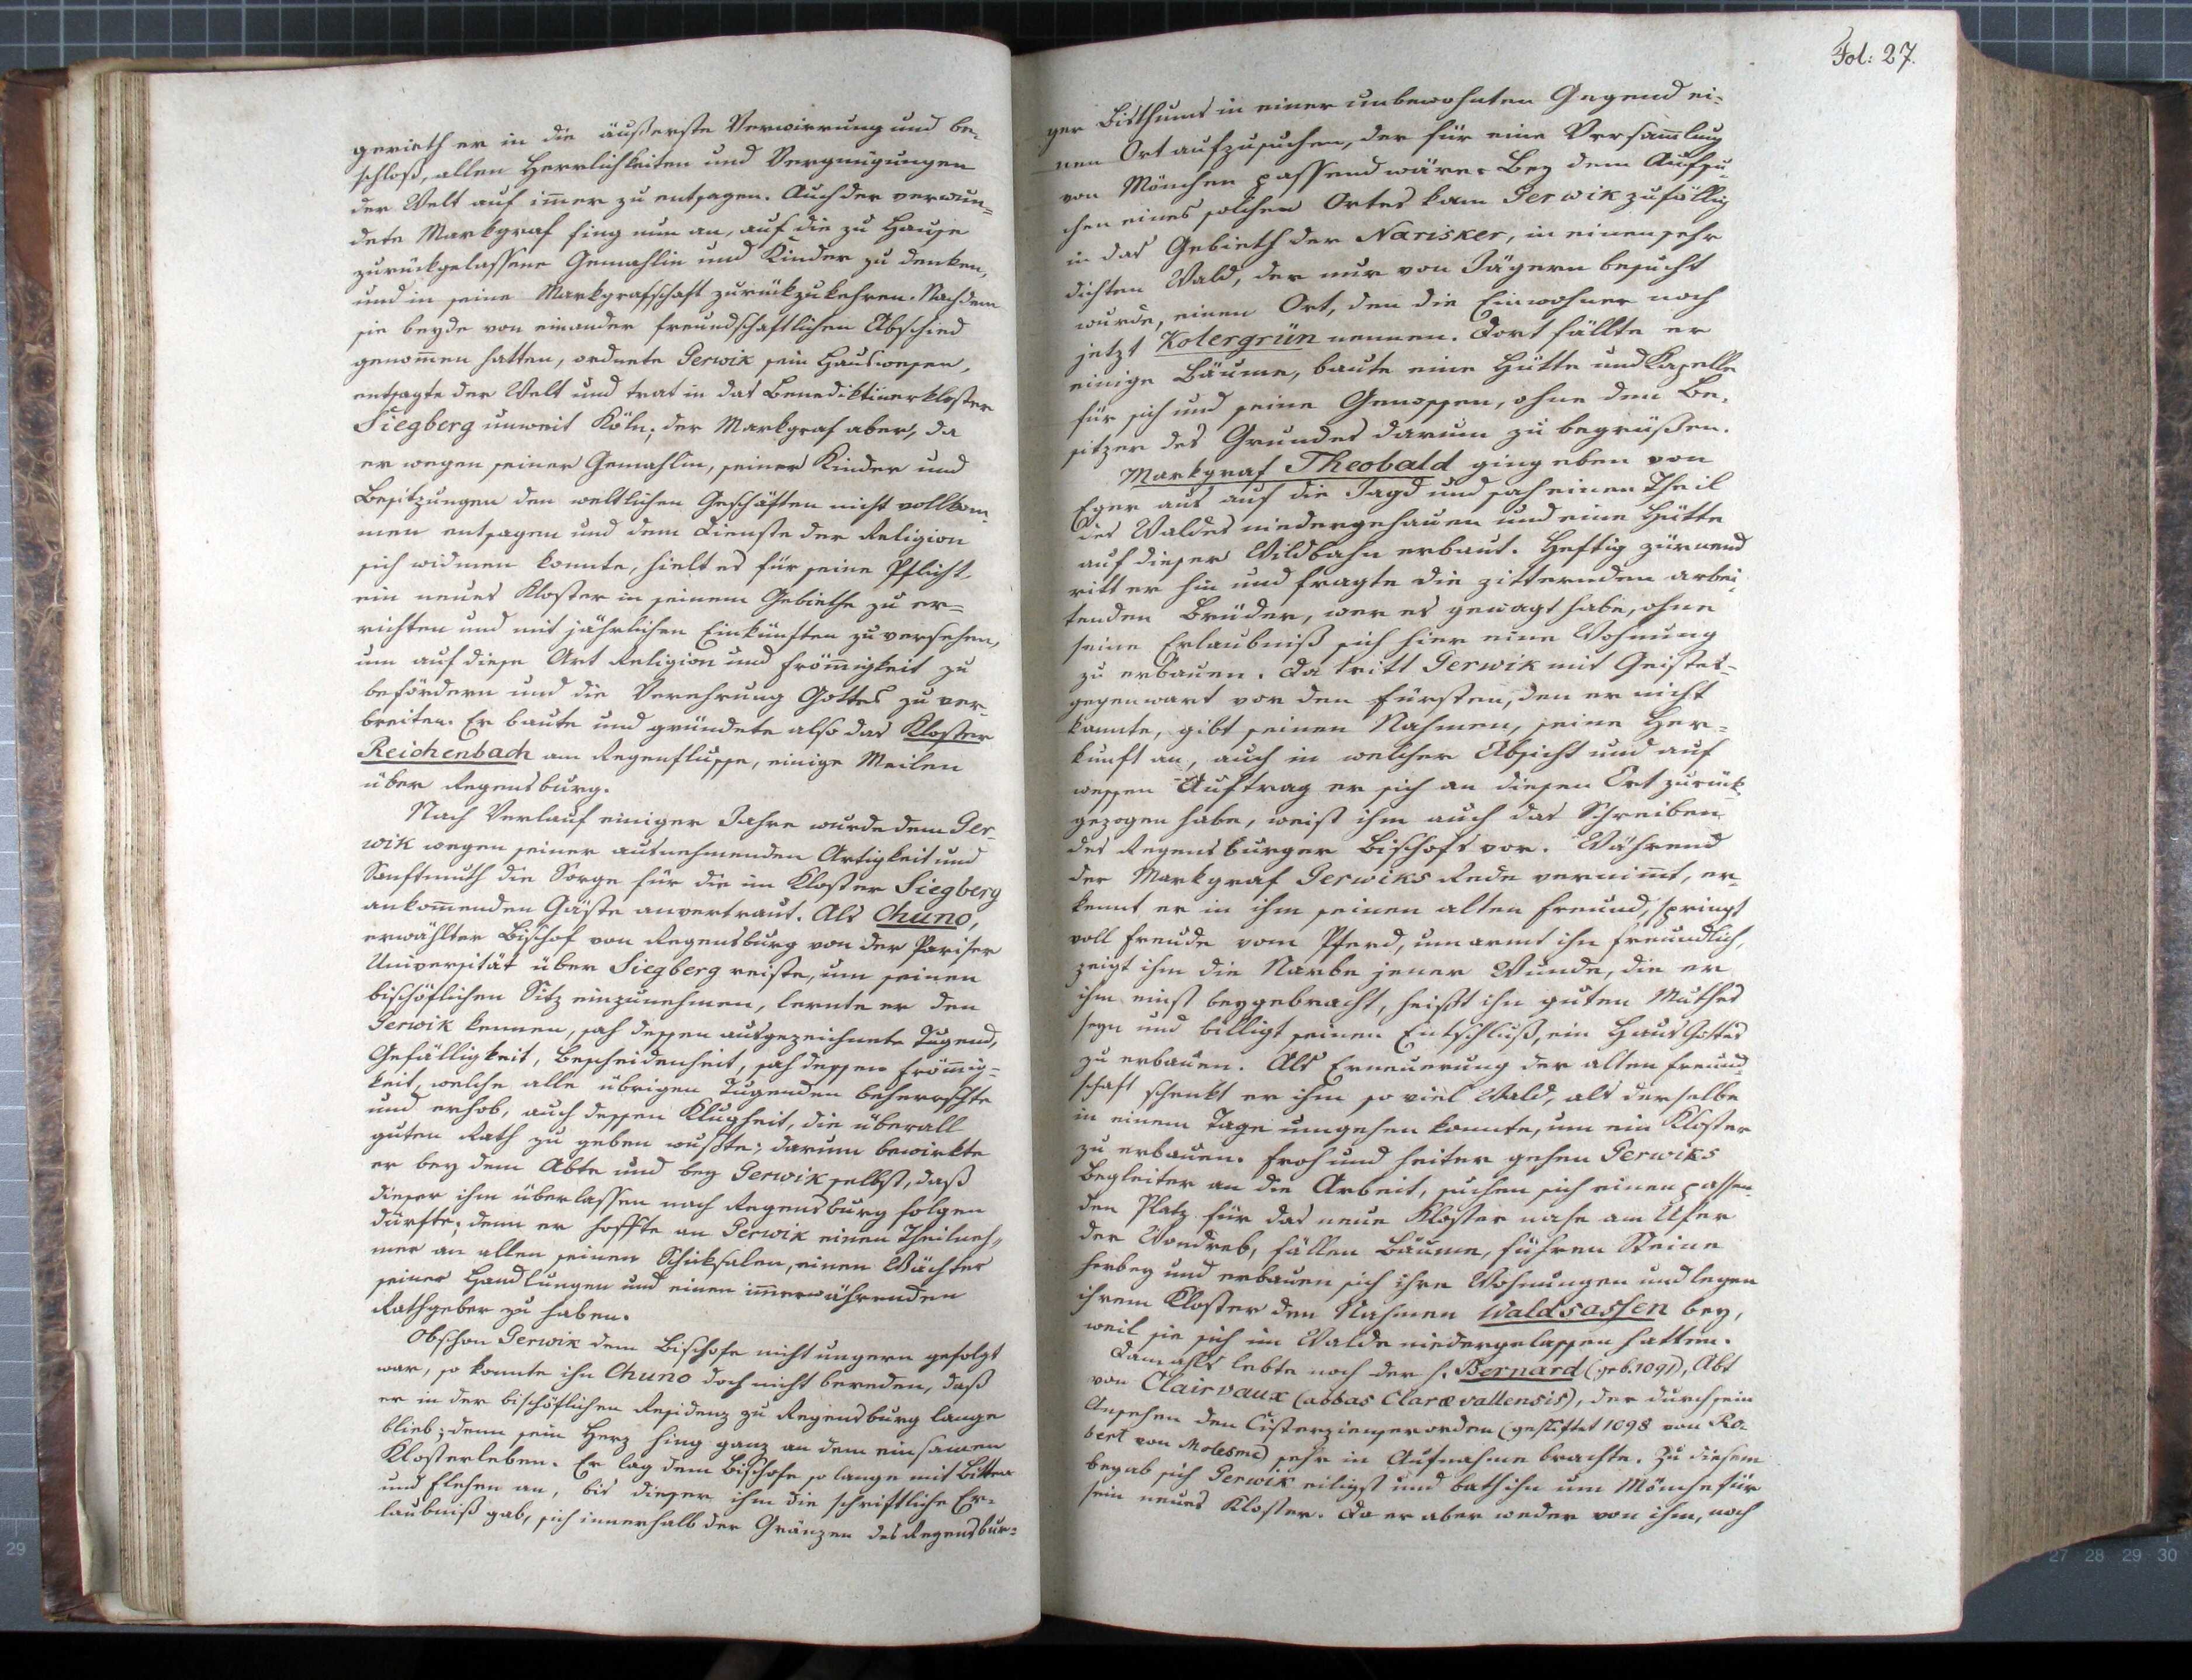 gerieth er in die äußerste Verwirrung und be-
schloß, allen Herrlichkeiten und Vergnügungen
der Welt auf im̄er zu entsagen. Auch der verwun-
dete Markgraf fing nun an, auf die zu Hause
zurückgelassene Gemahlin und Kinder zu denken,
und in seine Markgrafschaft zurückzukehren. Nachdem
sie beyde von einander freundschaftlichen Abschied
genom̄en hatten, ordnete Gerwik sein Hauswesen,
entsagte der Welt und trat in das Benediktinerkloster
Siegberg unweit Köln; der Markgraf aber, da
er wegen seiner Gemahlin, seiner Kinder und
Besitzungen den weltlichen Geschäften nicht vollkom-
men entsagen und dem Dienste der Religion
sich widmen konnte, hielt es für seine Pflicht,
ein neues Kloster in seinem Gebiethe zu er-
richten und mit jährlichen Einkünften zu versehen,
um auf diese Art Religion und Fröm̄igkeit zu
befördern und die Verehrung Gottes zu ver-
breiten. Er baute und gründete also das Kloster
Reichenbach am Regenflusse, einige Meilen
über Regensburg.
Nach Verlauf einiger Jahre wurde dem Ger-
wik wegen seiner ausnehmenden Artigkeit und
Sanftmuth die Sorge für die im Kloster Siegberg
ankom̄enden Gäste anvertraut. Als Chuno,
erwählter Bischof von Regensburg von der Pariser
Universität über Siegberg reiste, um seinen
bischöflichen Sitz einzunehmen, lernte er den
Gerwik kennen, sah dessen ausgezeichnete Tugend,
Gefälligkeit, Bescheidenheit, sah dessen Fröm̄ig-
keit, welche alle übrigen Tugenden beherrschte
und erhob, auch dessen Klugheit, die überall
guten Rath zu geben wußte; darum bewirkte
er bey dem Abte und bey Gerwik selbst, daß
dieser ihm überlassen nach Regensburg folgen
dürfte; denn er hoffte an Gerwik einen Theilneh-
mer an allen seinen Schiksalen, einen Wächter
seiner Handlungen und einen im̄erwährenden
Rathgeber zu haben.
Obschon Gerwik dem Bischofe nicht ungern gefolgt
war, so konnte ihn Chuno doch nicht bereden, daß
er in der bischöflichen Residenz zu Regensburg lange
blieb; denn sein Herz hing ganz an dem einsamen
Klosterleben. Er lag dem Bischofe so lange mit Bitten
und Flehen an, bis dieser ihm die schriftliche Er-
laubniß gab, sich innerhalb der Gränzen des Regensbur-
Fol: 27.
ger Bisthums in einer unbewohnten Gegend ei-
nen Ort aufzusuchen, der für eine Versam̄lung
von Mönchen passend wäre. Bey dem Aufsu-
chen eines solchen Ortes kam Gerwik zufällig
in das Gebieth der Narisker, in einen sehr
dichten Wald, der nur von Jägern besucht
wurde, einen Ort, den die Einwohner noch
jetzt Kotergrün nennen. Dort fällte er
einige Bäume, baute eine Hütte und Kapelle
für sich und seine Genossen, ohne den Be-
sitzer des Grundes darum zu begrüßen.
Markgraf Theobald ging eben von
Eger aus auf die Jagd und sah einen Theil
des Waldes niedergehauen und eine Hütte
auf dieser Wildbahn erbaut. Heftig zürnend
ritt er hin und fragte die zitternden arbei-
tenden Brüder, wer es gewagt habe, ohne
seine Erlaubniß sich hier eine Wohnung
zu erbauen. Da tritt Gerwik mit Geistes-
gegenwart vor den Fürsten, den er nicht
kannte, gibt seinen Nahmen, seine Her-
kunft an, auch in welcher Absicht und auf
wessen Auftrag er sich an diesen Ort zurück-
gezogen habe, weist ihm auch das Schreiben
des Regensburger Bischofs vor. Während
der Markgraf Gerwiks Rede vernim̄t, er-
kennt er in ihm seinen alten Freund, springt
voll Freude vom Pferd, umarmt ihn freundlich,
zeigt ihm die Narbe jener Wunde, die er
ihm einst beygebracht, heißt ihn guten Muthes
seyn und billigt seinen Entschluß, ein Haus Gottes
zu erbauen. Als Erneuerung der alten Freund-
schaft schenkt er ihm so viel Wald, als derselbe
in einem Tage umgehen konnte, um ein Kloster
zu erbauen. Froh und heiter gehen Gerwiks
Begleiter an die Arbeit, suchen sich einen passen-
den Platz für das neue Kloster nahe am Ufer
der Wondreb, fällen Bäume, führen Steine
herbey und erbauen sich ihre Wohnungen und legen
ihrem Kloster den Nahmen Waldsassen bey,
weil sie sich im Walde niedergelassen hatten.
Damahls lebte noch der h. Bernard (geb. 1091), Abt
von Clairvaux (abbas Claræ vallensis), der durch sein
Ansehen den Cisterzienserorden (gestiftet 1098 von Ro-
bert von Molesme) sehr in Aufnahme brachte. Zu diesem
begab sich Gerwik eiligst und bath ihn um Mönche für
sein neues Kloster. Da er aber weder von ihm, noch
29
27 28 29 30